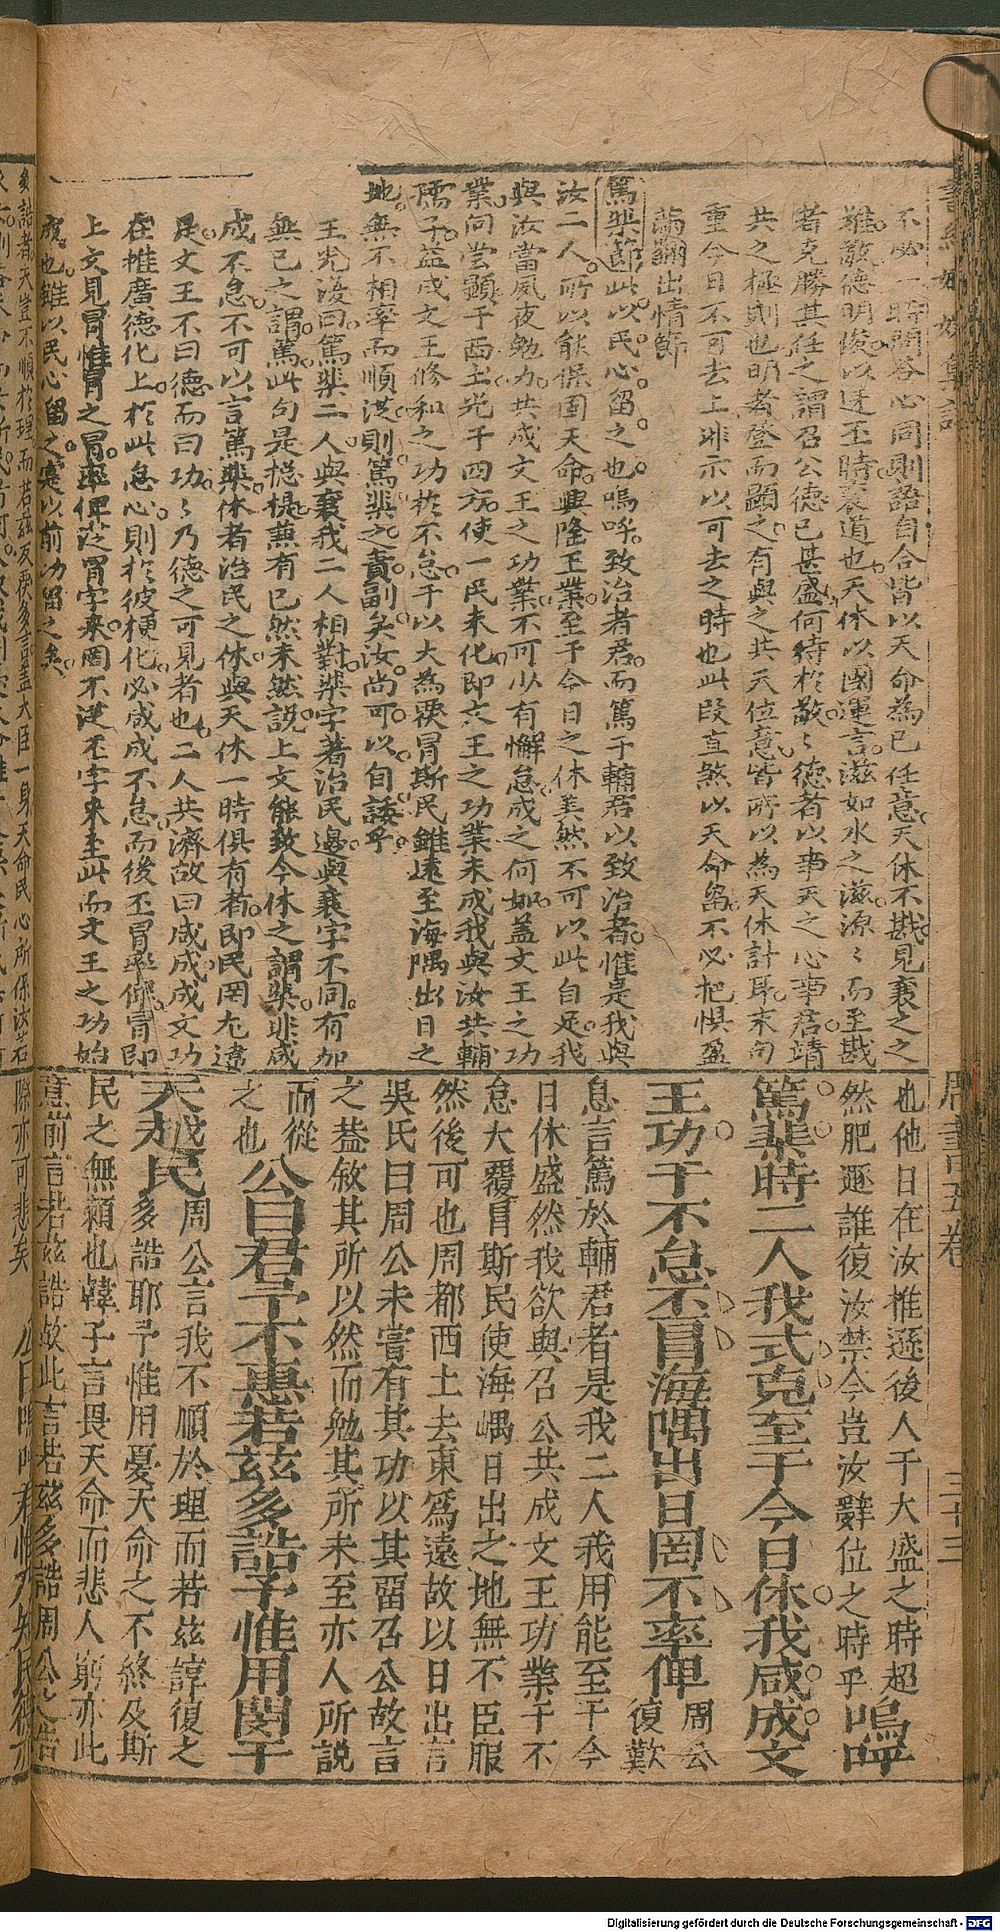 不必一時開容心同則語自合皆以天命為己任意天休不戡見襄之之
難敬德明俊以遜丕時處道也天休以國運言滋如水之滋源〻而至戡
者克勝其任之謂召公德已甚盛何待於敬〻德者以事天之心事君靖
共之極則也明者登而顯之有與之共天位意皆所以為天休計耳末句
重今日不可去上非示以可去之時也此段直煞以天命留不必把惧盈
滿翻出情節
篤棐節此以民心留之也嗚呼致治者君而篤于輔君以致治者惟是我與
汝二人所以能保固天命興隆王業至于今日之休美然不可以此自足我
與汝當夙夜勉力共成文王之功業不可少有懈怠成之何如盖文王之功
業向嘗顯于西土光于四方使一民未化即文王之功業未成我與汝共輔
孺子益成文王修和之功於不怠于以大為覆冒斯民雖遠至海隅出日之
地無不相率而順從則篤棐之責副矣汝尚可以自諉乎
王光浚曰篤棐二人與襄我二人相對棐字著治民邊與襄字不同有加
無已之謂篤此句是總提兼有已然未然說上文能致今休之謂棐非咸
成不怠不可以言篤棐休者治民之休與天休一時俱有者即民罔尤違
是文王不曰德而曰功〻乃德之可見者也二人共濟故曰咸成成文功
在推廣德化上於此怠心則於彼梗化必咸成不怠而後丕冒率俾冒即
上文見冒惟冒之冒率俾從冒字來罔不從丕字來至此而文王之功始
成也雖以民心留之實以前功留之矣
周書五卷
三十三
也他日在汝推遜後人于大盛之時超
然肥遯誰復汝禁今豈汝辭位之時乎嗚呼
篤棐時二人我式克至于今日休我咸成文
王功于不怠丕冒海隅出日罔不率俾周公
復歎
息言篤於輔君者是我二人我用能至于今
日休盛然我欲與召公共成文王功業于不
怠大覆冒斯民使海嵎日出之地無不臣服
然後可也周都西土去東爲遠故以日出言
吳氏曰周公未嘗有其功以其畱召公故言
之葢敘其所以然而勉其所未至亦人所説
而從
之也公曰君予不惠若兹多誥予惟用閔于
天越民周公言我不順於理而若兹諄復之
多誥耶予惟用憂天命之不終及斯
民之無賴也韓子言畏天命而悲人窮亦此
意前言若兹誥故此言若兹多誥周公之告
Digitalisierung gefördert durch die Deutsche Forschungsgemeinschaft - DFG